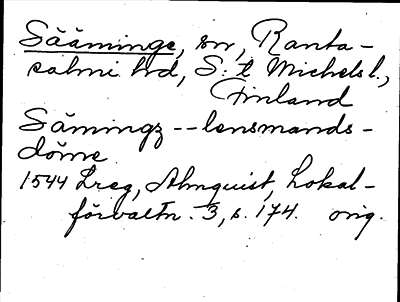 Sääminge, sn, Ranta-
salmi hd, S:t Michels l.,
Finland
Sämingz -- lensmands-
döme
1544 Lreg, Almquist, Lokal-
förvaltn. 3, s. 174. orig.